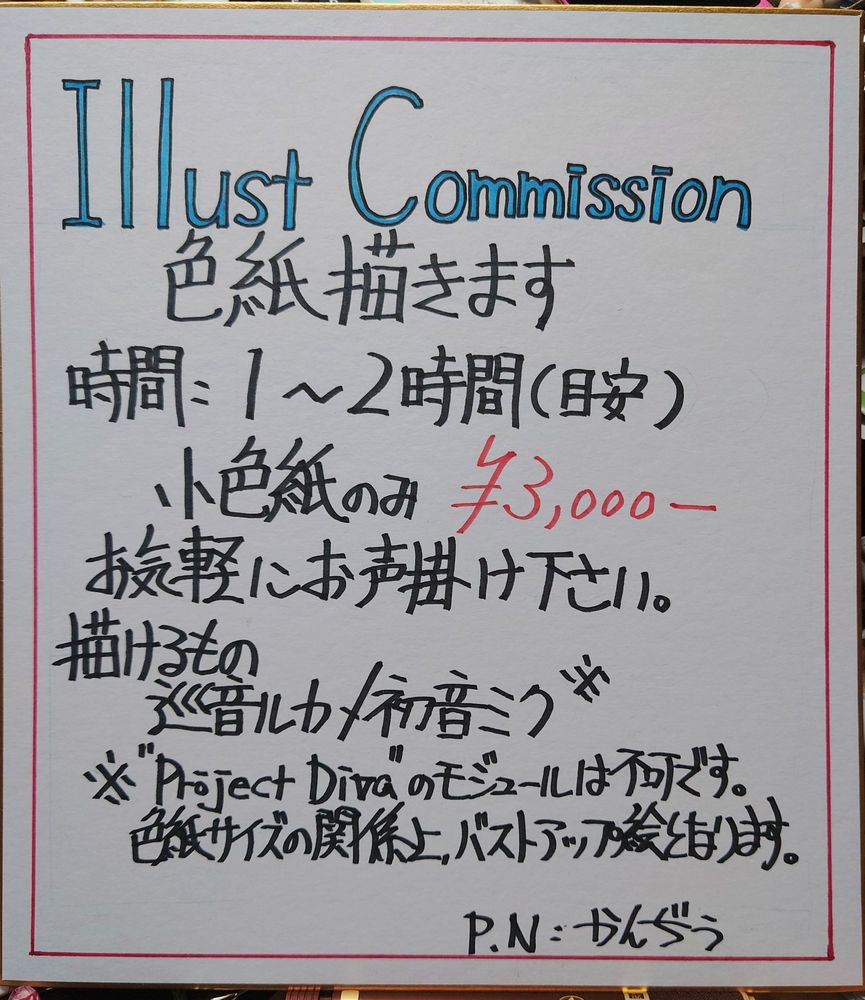 Illust Commission
色紙描きます
時間:1～2時間(目安)
小色紙のみ ¥3,000ー
お気軽にお声掛け下さい。
描けるもの
巡音ルカ/初音ミク※
※"Project Diva"のモジュールは不可です。
色紙サイズの関係上,バストアップ絵となります。
P.N:かんぢう